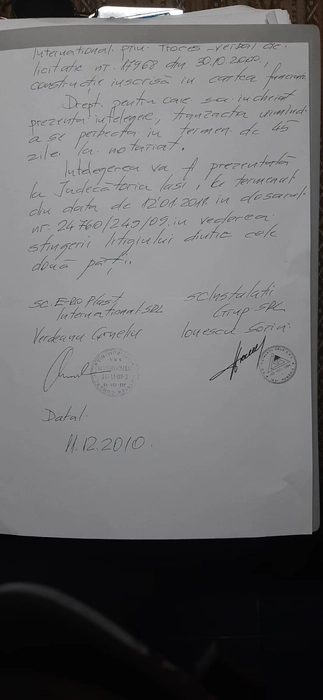 International prin Proces-verbal de
licitatie nr. 17968 din 30.10.2000,
constructie inscrisă in cartea funciara
Drept pentru care s-a incheiat
prezenta intelegere, tranzactia urmand
a se perfecta in termen de 45
zile la notariat.
Intelegerea va fi prezentată
la Judecătoria Iasi, la termenul
din data de 12.01.2011 in dosarul
nr. 24760/245/09 in vederea
stingerii litigiului dintre cele
două părți.
SC E-RO Plast
International SRL
Verdeanu Corneliu
SC Instalatii
Grup SRL
Ionescu Sorin
Data:
11.12.2010.